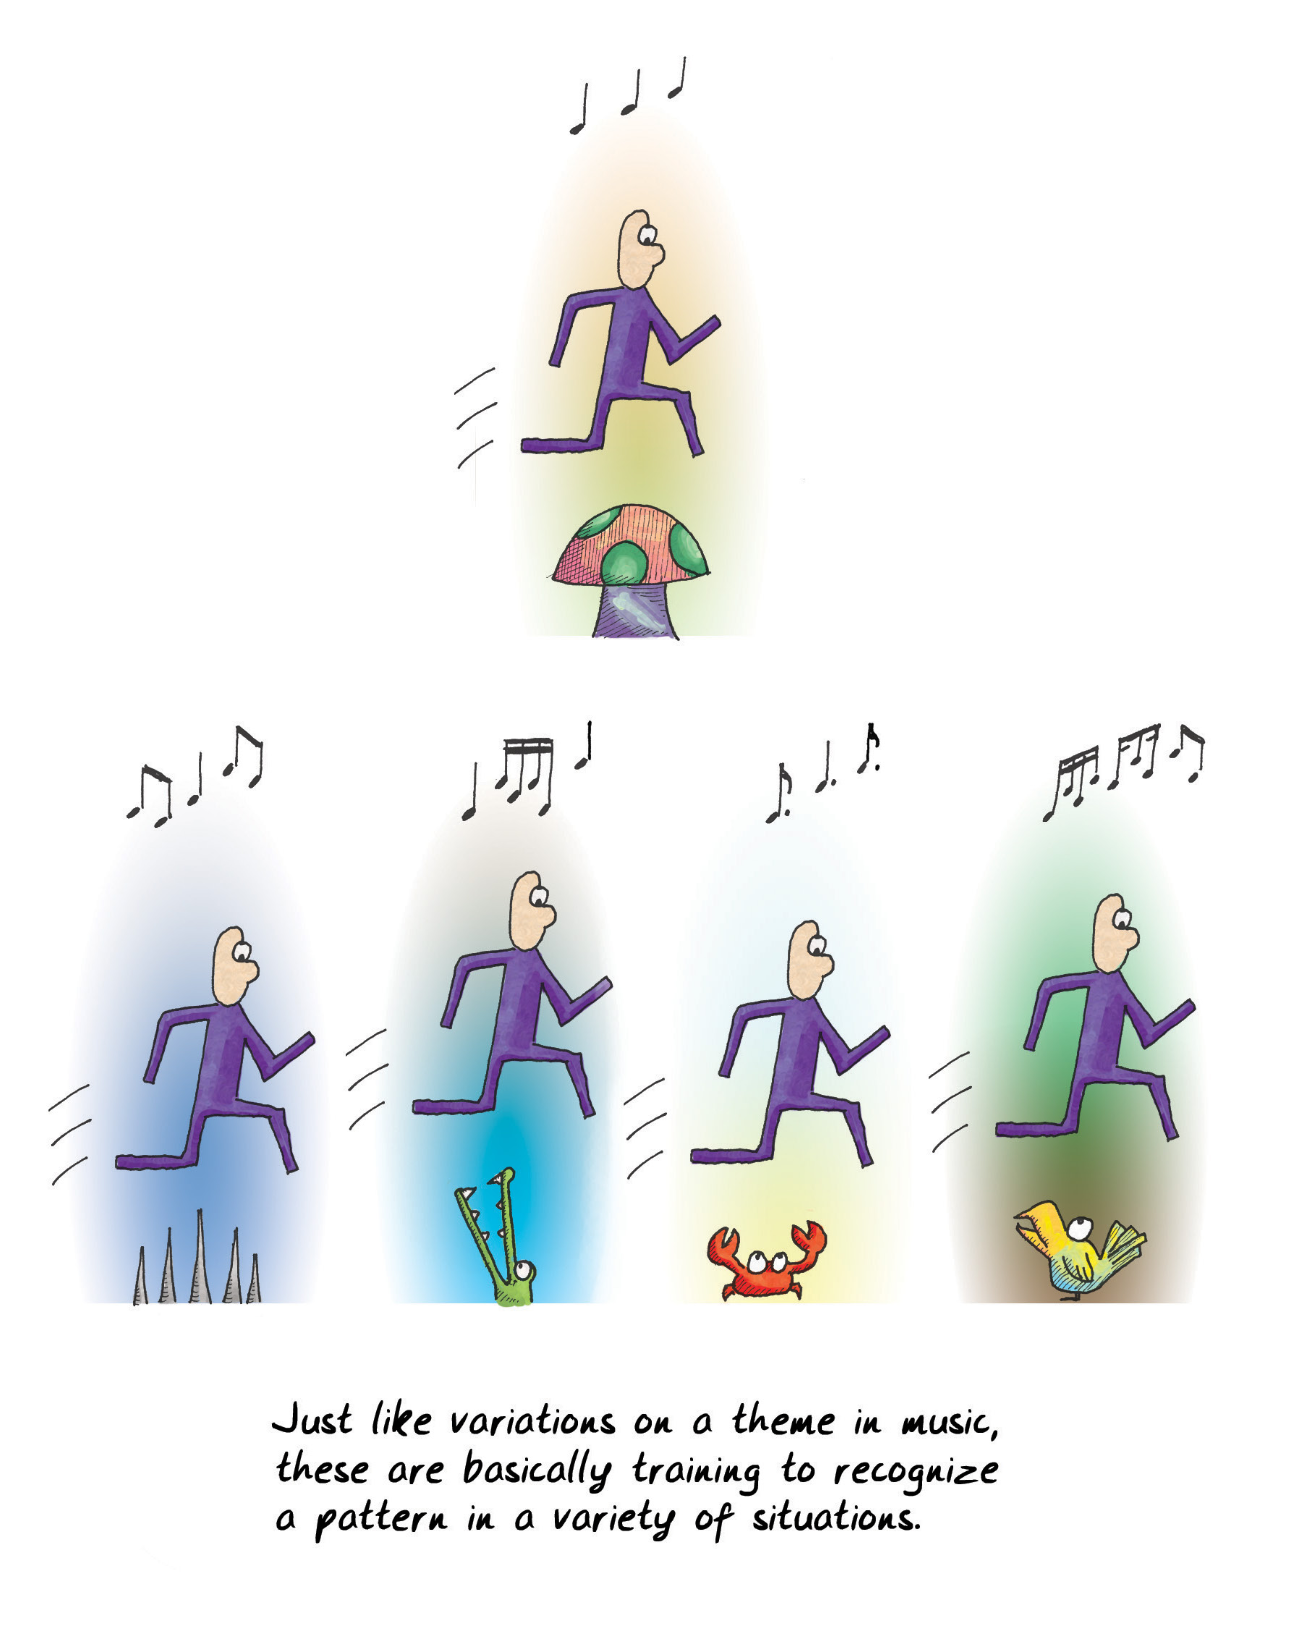 Just like variations on a theme in music,
these are basically training to recognize
a pattern in a variety of situations.